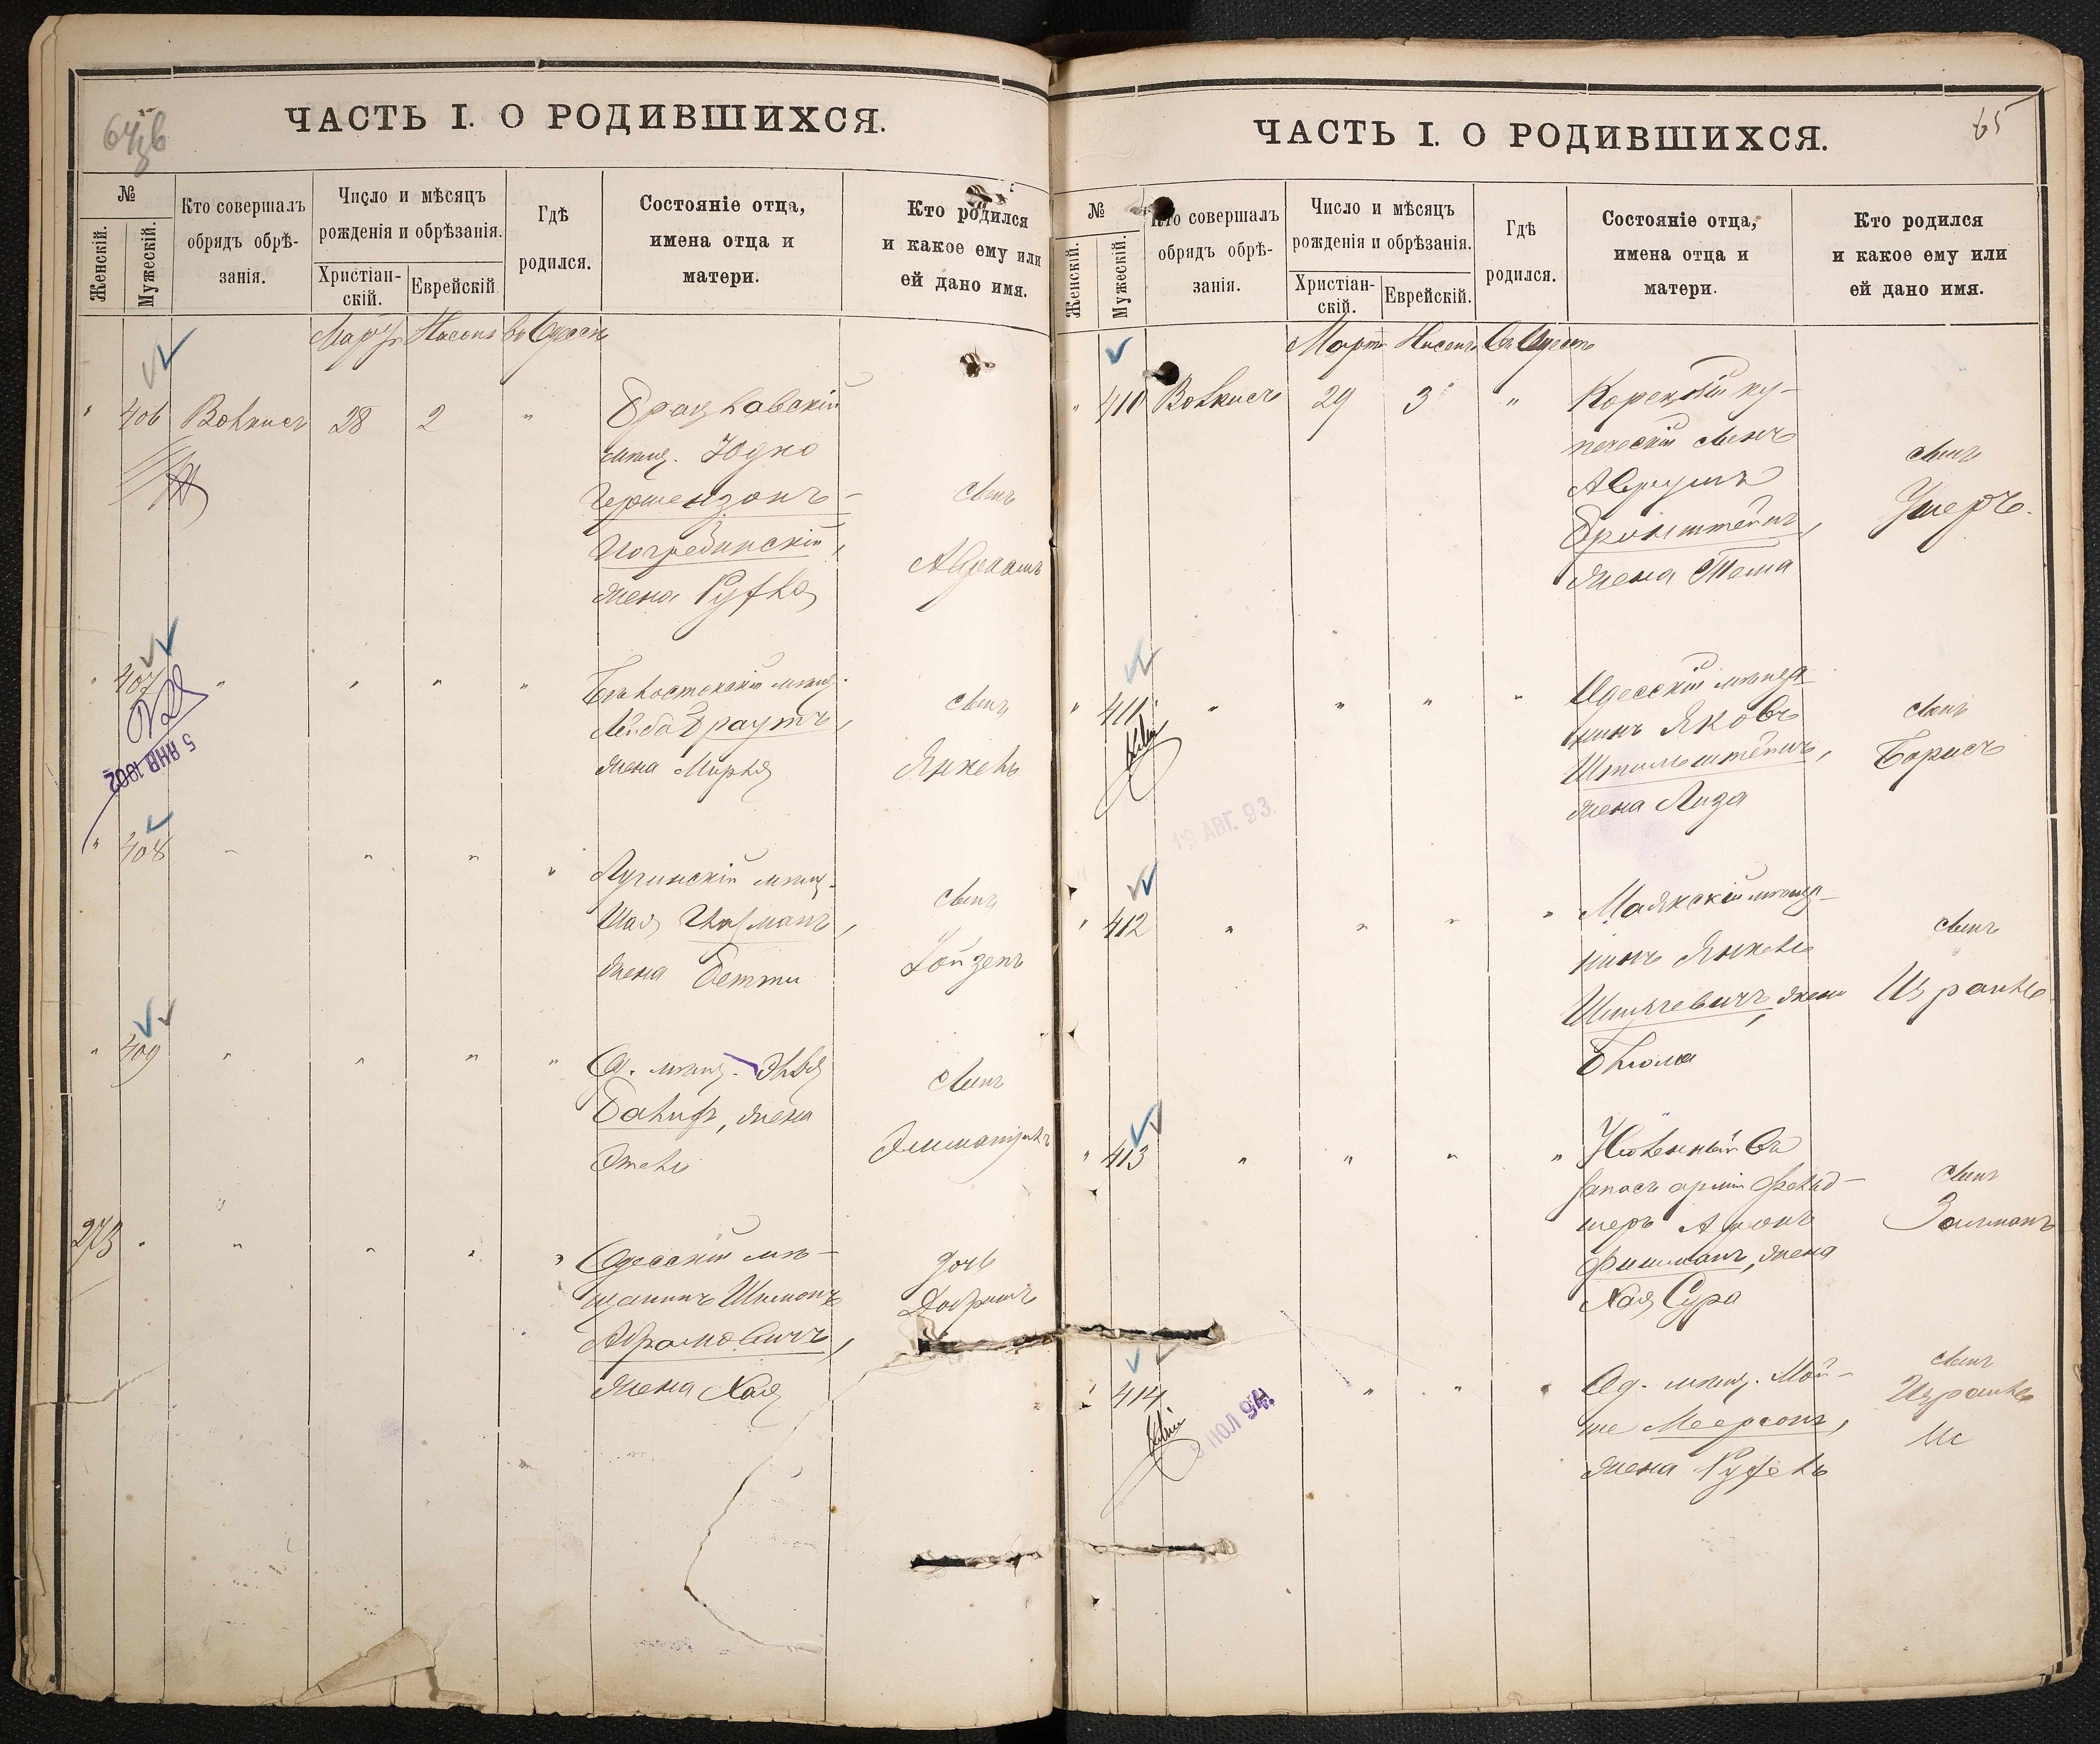 ЧАСТЬ I. О РОДИВШИХСЯ.
№
Женскій.
Мужескій.
Кто совершалъ
обрядъ обрѣ-
занія.
Число и мѣсяцъ
рожденія и обрѣзанія.
Христіан-
скій.
Еврейскій
Гдѣ
родился.
Состояніе отца,
имена отца и
матери.
Кто родился
и какое ему или
ей дано имя.
Мартъ Нисонъ въ Одессѣ
" 406 Волкисъ 28 2 "
Брацлавскій
мѣщ. Юдко
Гершензонъ-
Погребинскій,
жена Рухля
сынъ
Абрамъ
" 407 " " " "
Бѣлостокскій мѣщ.
Лейба Траутъ,
жена Мирля
сынъ
Янкель
5 ЯНВ 1902
" 408 " " " "
Лугинскій мѣщ.
Шая Гохманъ,
жена Бетти
сынъ
Лойзеръ
" 409 " " " "
Од. мѣщ. Элья
Балиръ, жена
Этель
сынъ
Эммануилъ
273 " " " " "
Одесскій мѣ-
щанинъ Шимонъ
Абрамовичъ,
жена Хая
дочь
Добришъ
ЧАСТЬ I. О РОДИВШИХСЯ.
65
№
Женскій.
Мужескій.
Кто совершалъ
обрядъ обрѣ-
занія.
Число и мѣсяцъ
рожденія и обрѣзанія.
Христіан-
скій.
Еврейскій.
Гдѣ
родился.
Состояніе отца,
имена отца и
матери.
Кто родился
и какое ему или
ей дано имя.
Мартъ Нисонъ Въ Одессѣ
" 410 Волкисъ 29 3 "
Корецкій ку-
печескій сынъ
Аврумъ
Бронштейнъ,
жена Тема
сынъ
Ушеръ.
" 411 " " " "
Одесскій мѣща
нинъ Яковъ
Штильштейнъ,
жена Лиза
сынъ
Борисъ
19 АВГ. 93.
" 412 " " " "
Маякскій мѣща-
нинъ Янкель
Шмулевичъ, жена
Блюма
сынъ
Израиль
" 413 " " " "
Уволенный въ
запасъ арміи фельд-
шеръ Аронъ
Фишманъ, жена
Хая Сура
сынъ
Залманъ
" 414 " " "
Од. мѣщ. Мой-
ше Меерсонъ,
жена Рухель
сынъ
Израиль
ИЮЛ 94.